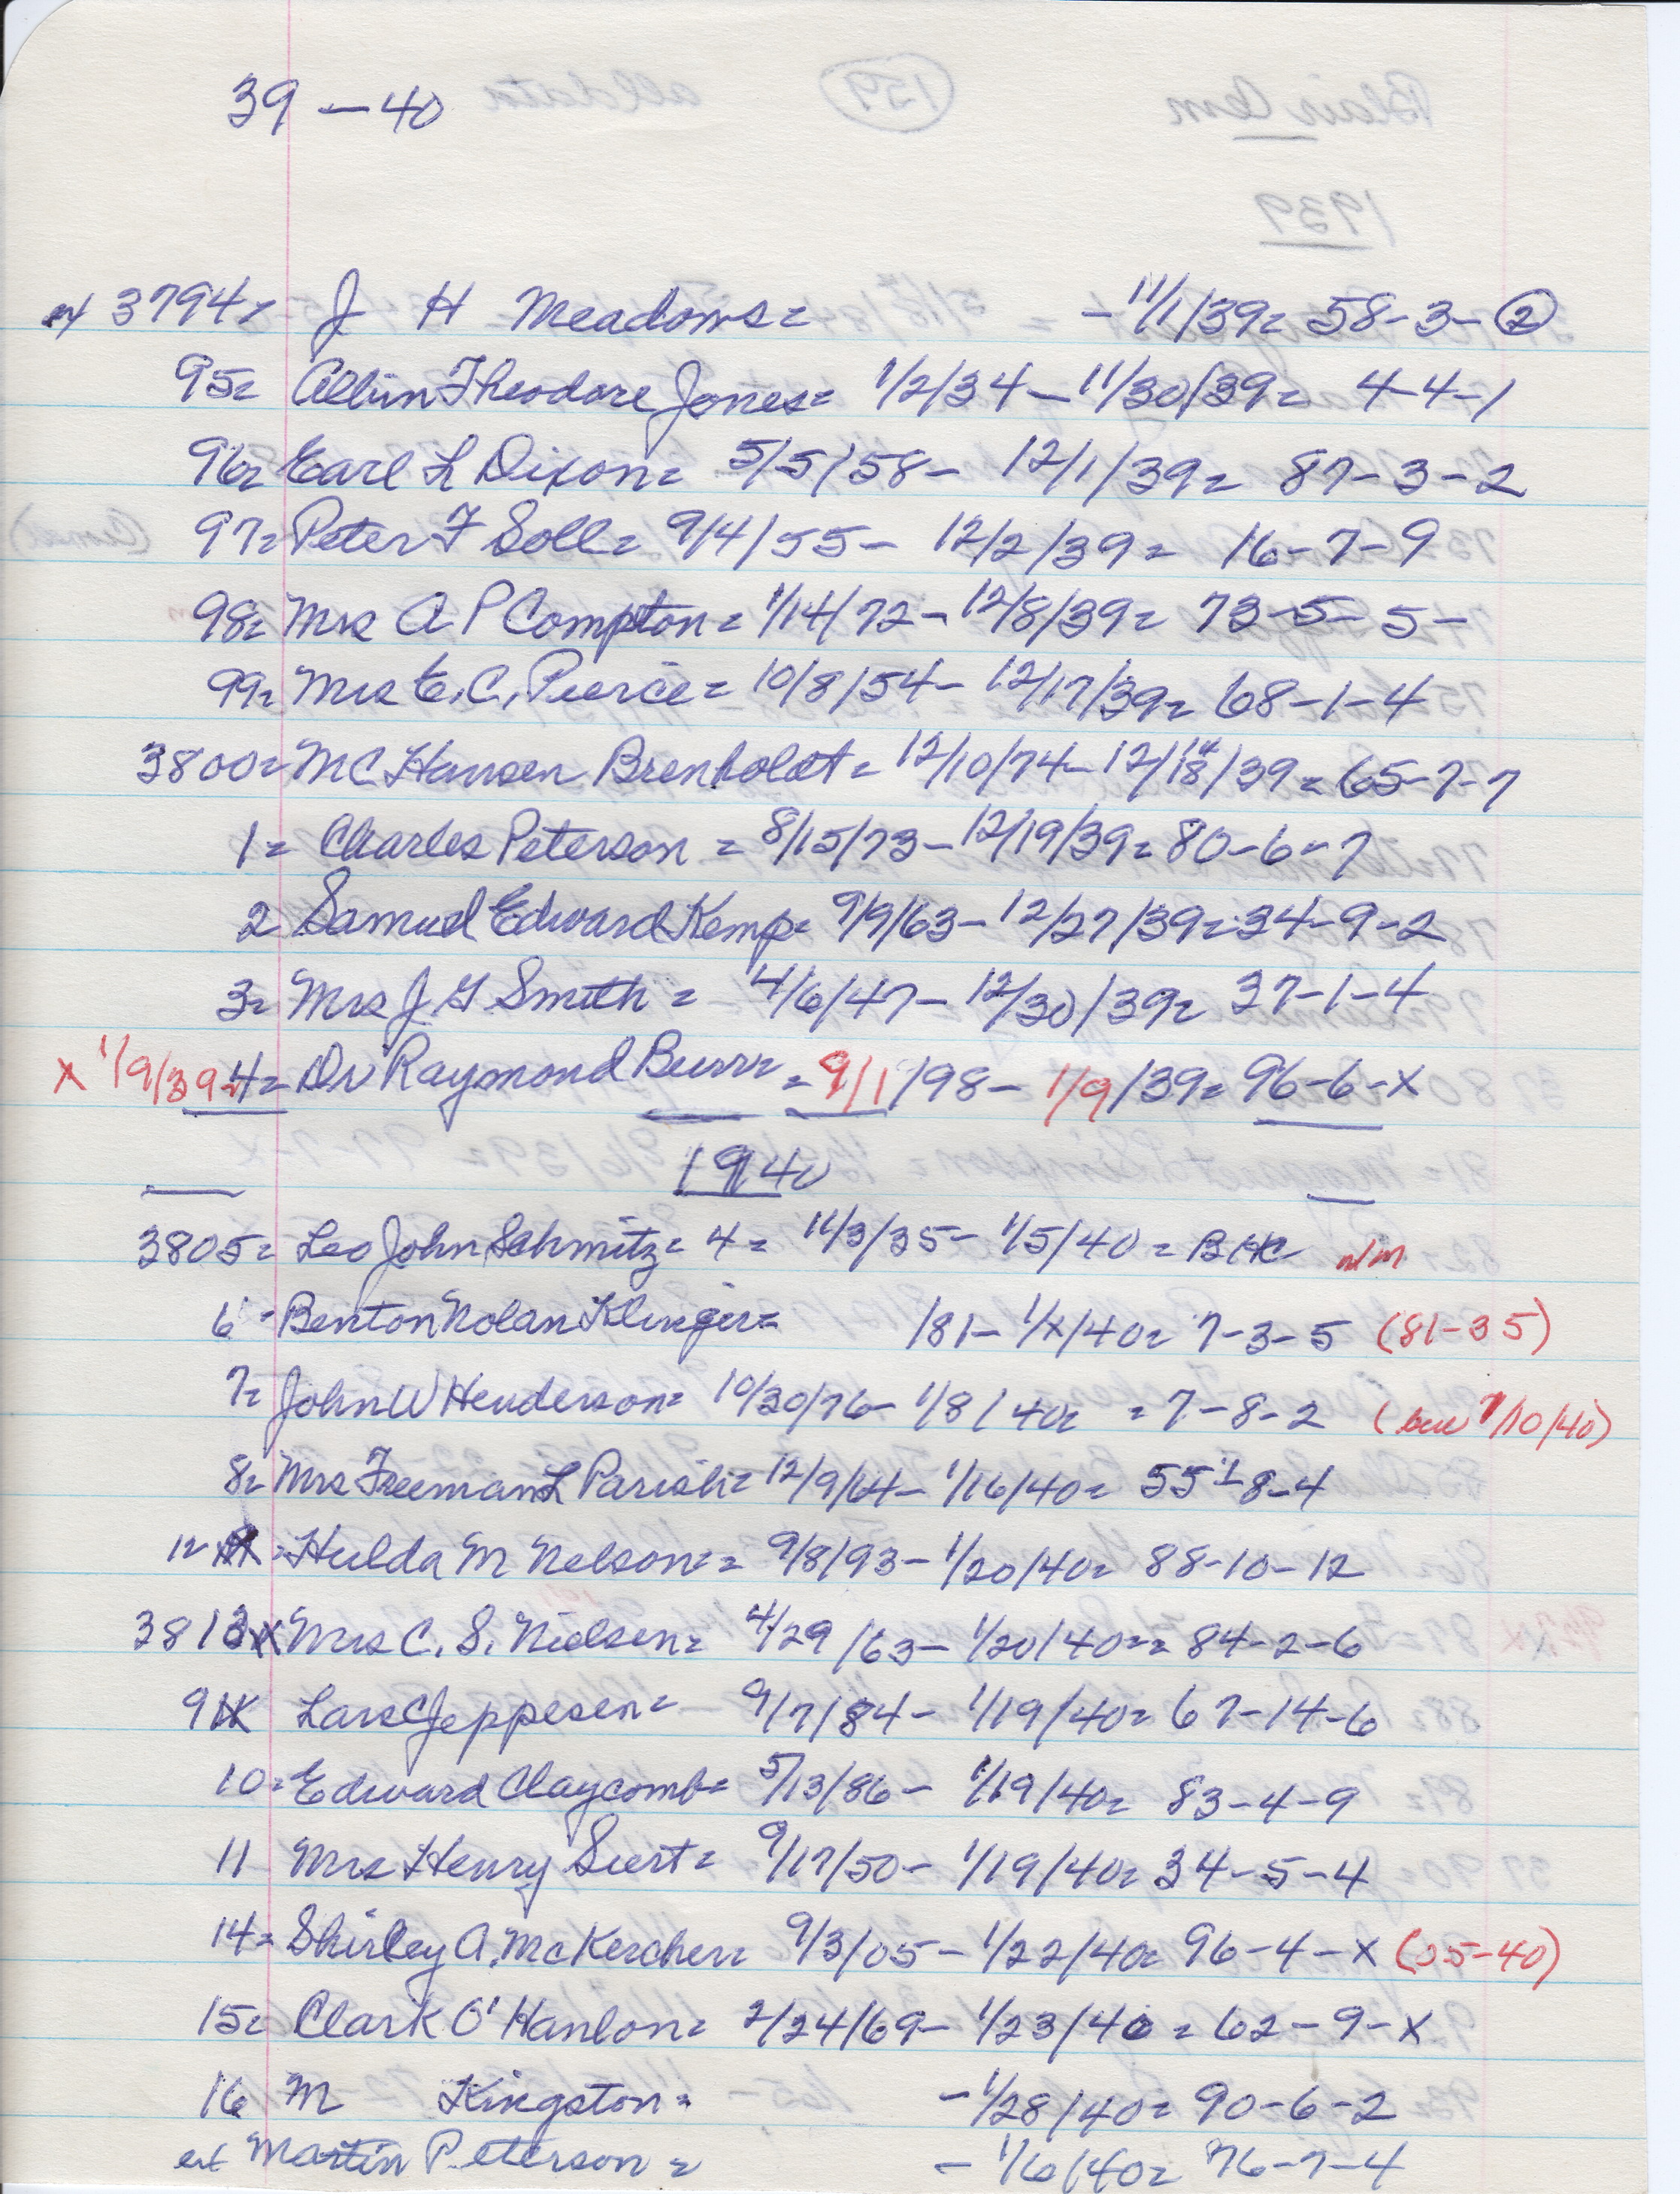 39 - 40
3794 J H Meadows= - 11/1/39= 58-3-②
95= Albin Theodore Jones= 1/2/34 - 11/30/39= 4-4-1
96= Earl L Dixon= 5/5/58 - 12/1/39= 87-3-2
97= Peter F Soll= 9/4/55 - 12/2/39= 16-7-9
98= Mrs A P Compton= 1/14/72 - 12/8/39= 73-5-5-
99= Mrs E. C. Pierce= 10/8/54 - 12/17/39= 68-1-4
3800= MC Hansen Brenholdt= 12/10/74 - 12/18/39= 65-7-7
1= Charles Peterson = 8/15/73 - 12/19/39= 80-6-7
2 Samuel Edward Kemp= 9/9/63 - 12/27/39= 34-9-2
3= Mrs J G Smith= 4/6/47 - 12/30/39= 37-1-4
x 1/9/39 4= Dr Raymond Burr= = 9/1/98 - 1/9/39= 96-6-x
1940
3805= Leo John Schmitz= 4= 11/3/35 - 1/5/40 = n/m
6 - Benton Nolan Klinger= /81 - 1/x/40= 7-3-5 (81-35)
7= John W Henderson= 10/30/76 - 1/8/40= = 7-8-2 (bur 1/10/40)
8= Mrs Freeman L Parish= 12/9/64 - 1/16/40= 55-8-4
12 = Hulda M Nelson= = 9/8/93 - 1/20/40= 88-10-12
3813 Mrs C. S. Nielsen= 4/29/63 - 1/20/40== 84-2-6
9 Lars C Jeppesen= 9/7/84 - 1/19/40= 67-14-6
10= Edward Claycomb= 5/13/86 - 1/19/40= 83-4-9
11 Mrs Henry Siert= 9/17/50 - 1/19/40= 34-5-4
14= Shirley A. McKercher= 9/3/05 - 1/22/40= 96-4-x (05-40)
15= Clark O'Hanlon= 2/24/69 - 1/23/40 = 62-9-x
16 M Kingston= - 1/28/40= 90-6-2
ext Martin Peterson= - 1/6/40= 76-7-4